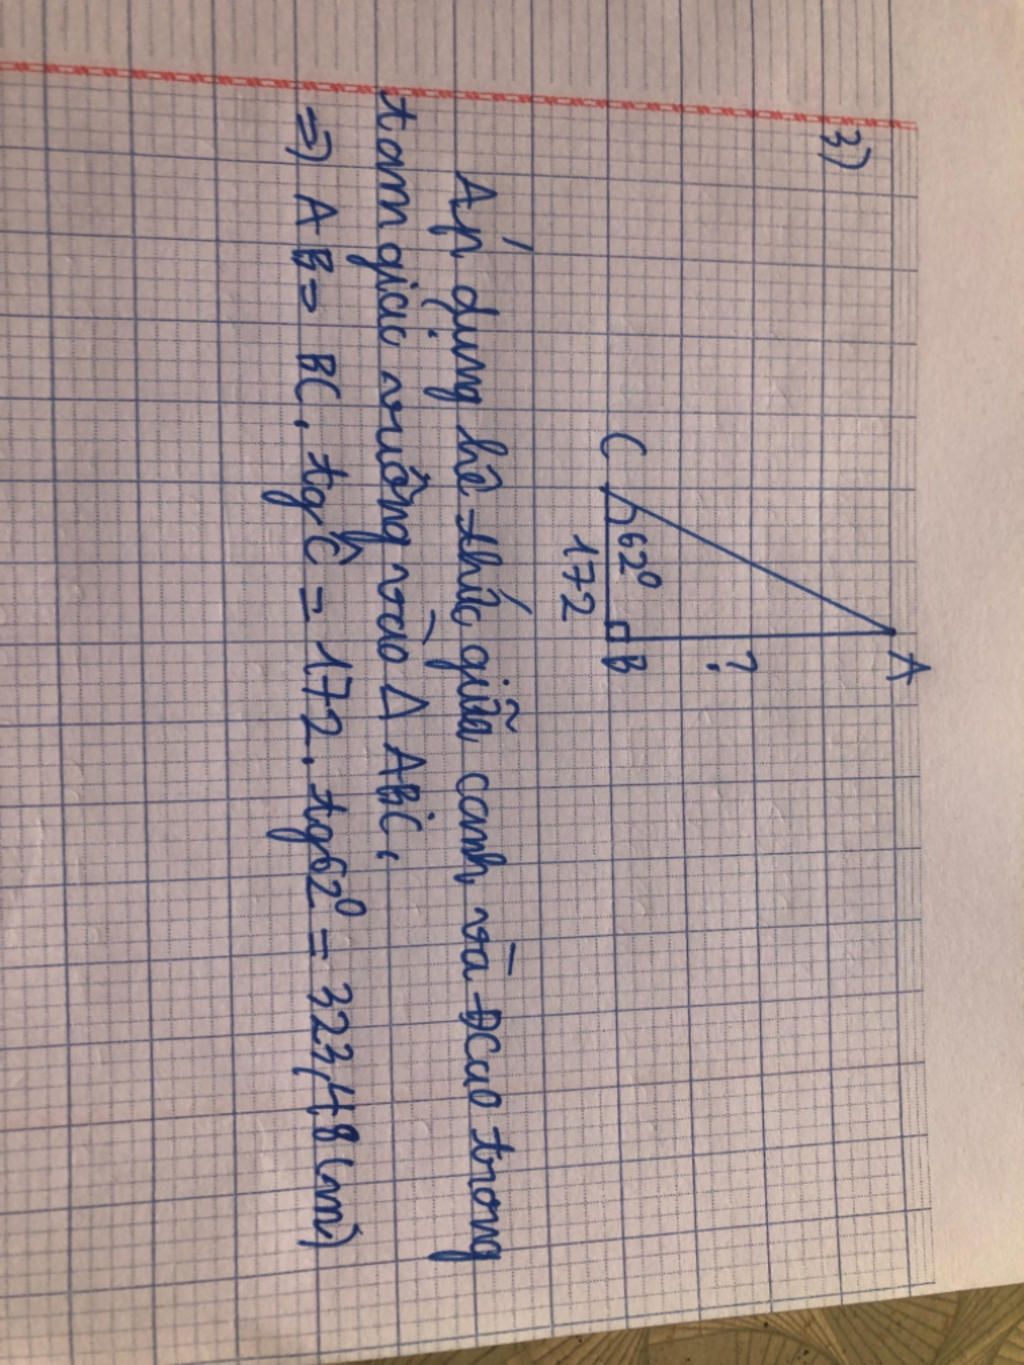 3)
A
?
C 62⁰ B
172
Áp dụng hê thức giữa canh và Đcao trong
tam giác vuông vào Δ ABC,
=> AB = BC. tgĈ = 172. tg62⁰ = 323,48 (m)